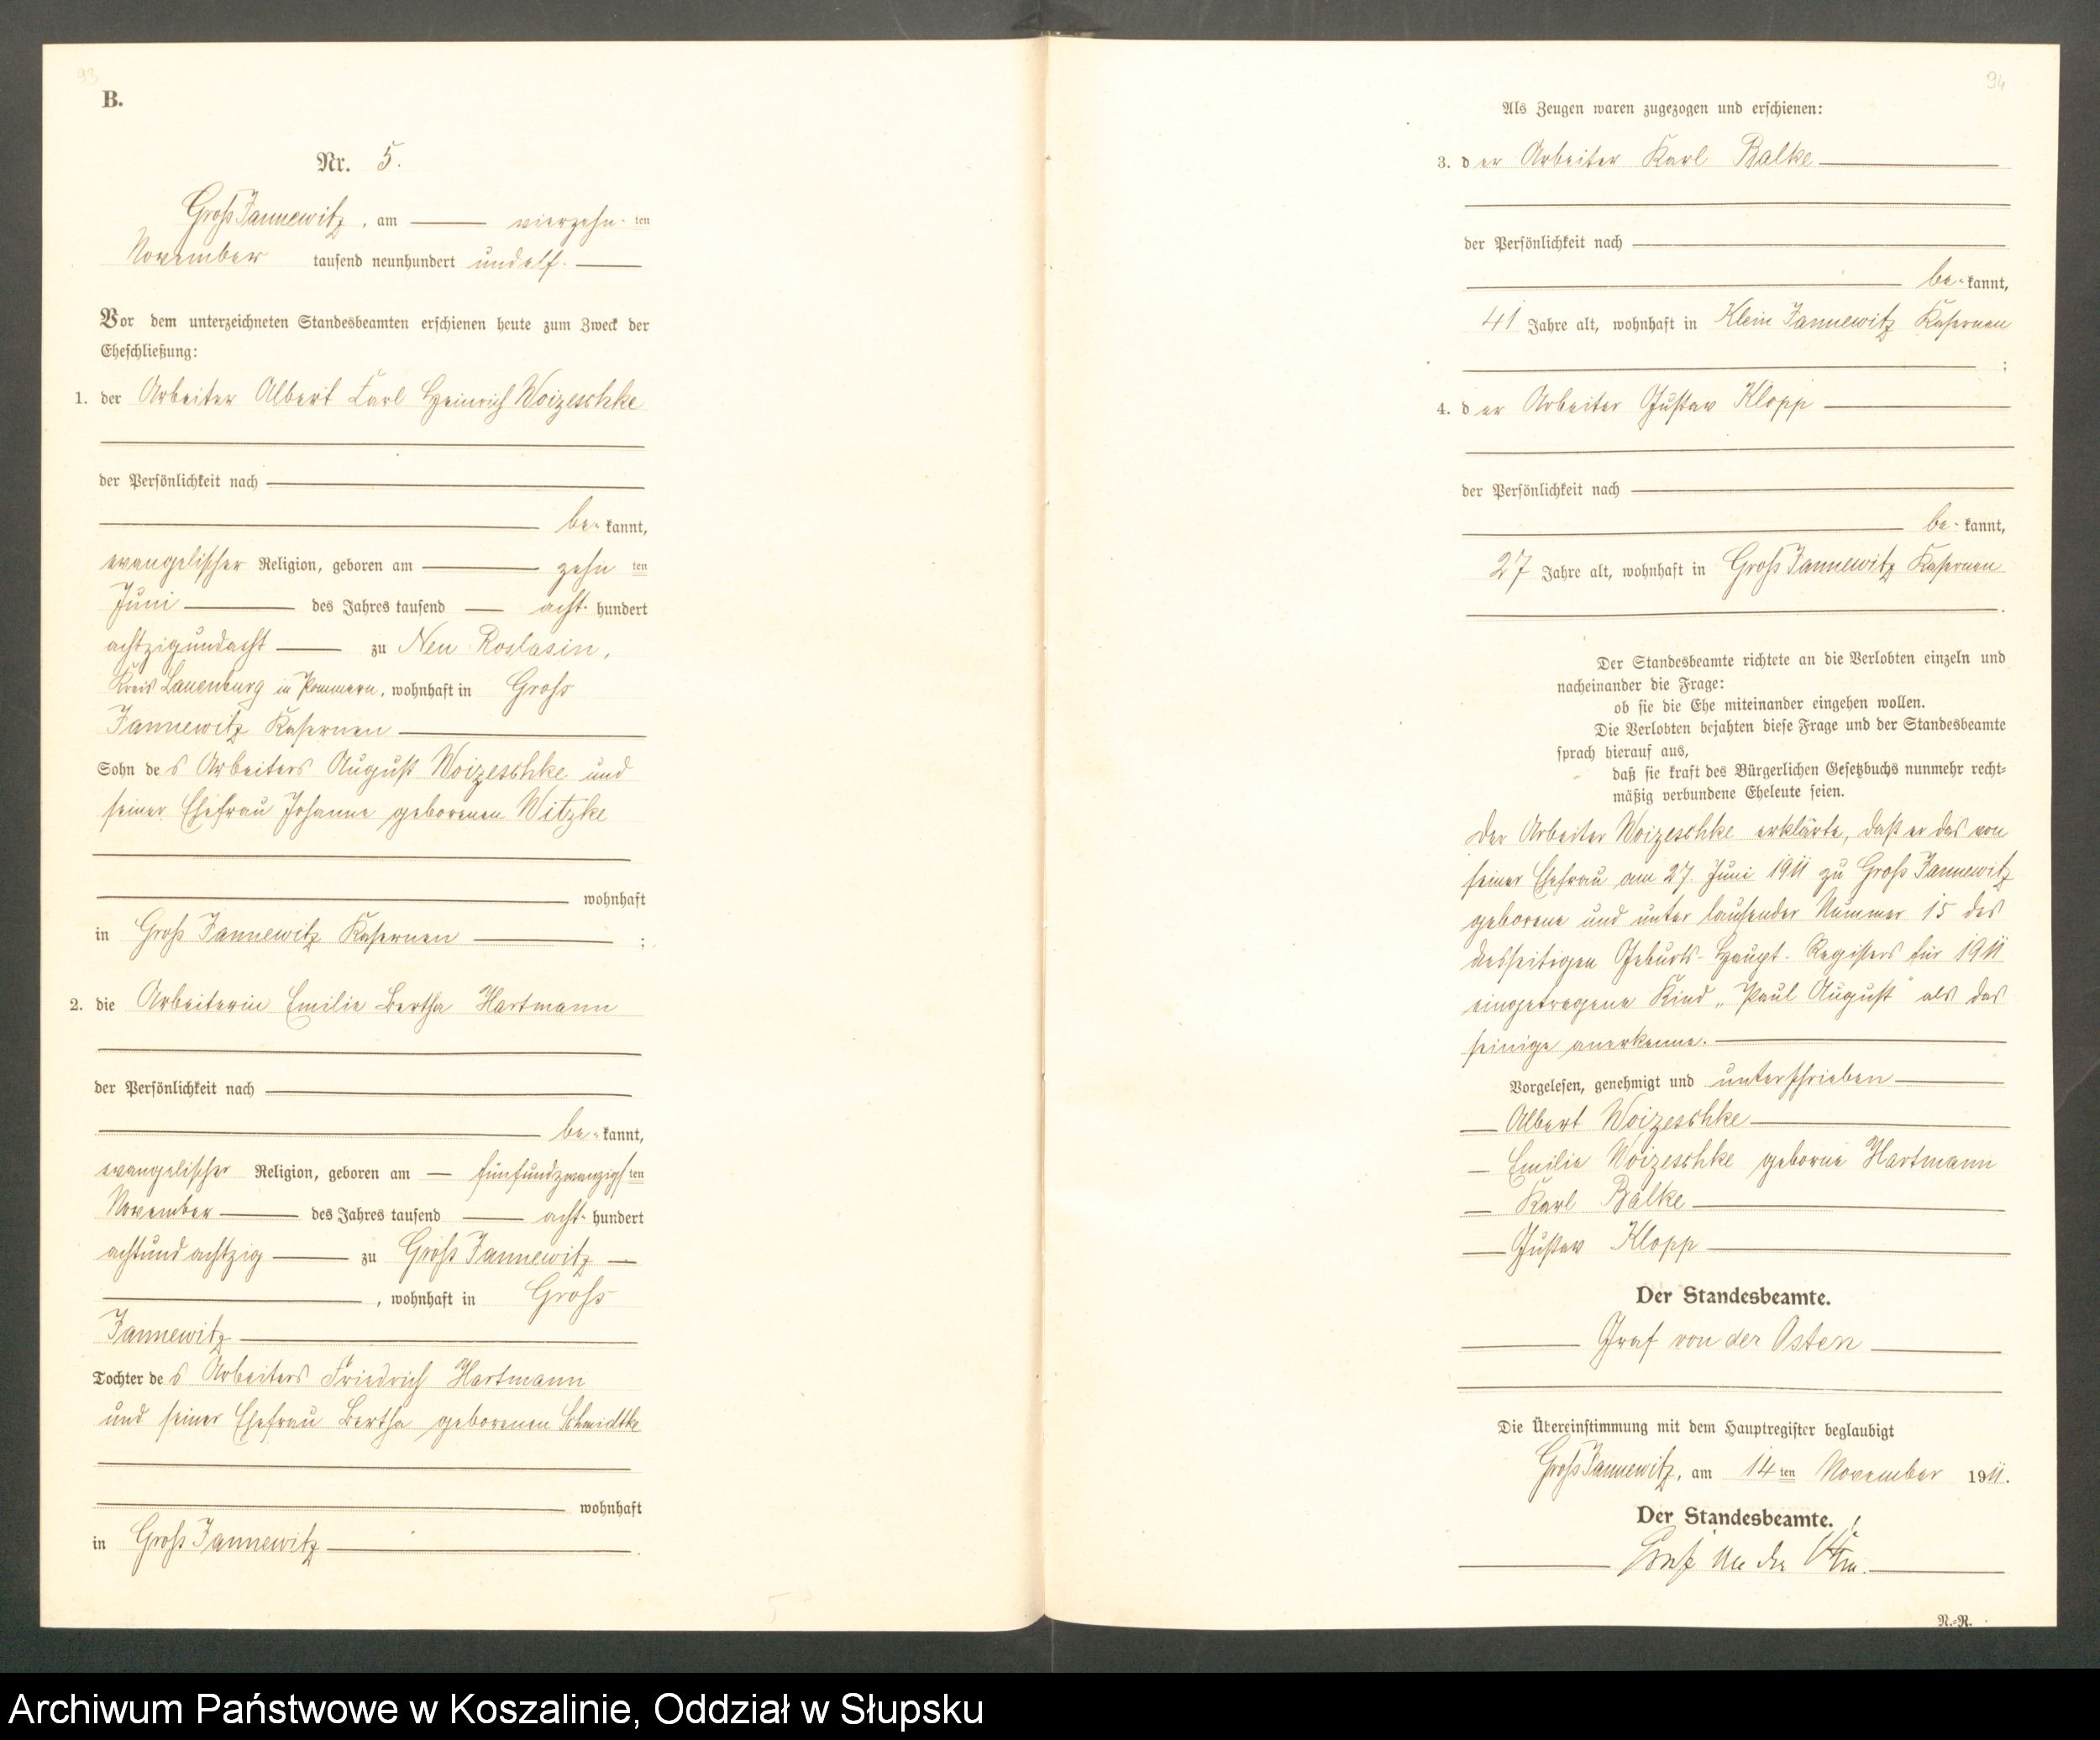 93
B.
Nr. 5.
Groß Jannewitz, am vierzehn- ten
November tausend neunhundert undelf.
Vor dem unterzeichneten Standesbeamten erschienen heute zum Zweck der
Eheschließung:
1. der Arbeiter Albert Karl Heinrich Woizeschke
der Persönlichkeit nach
be- kannt,
evangelischer Religion, geboren am zehn ten
Juni des Jahres tausend acht- hundert
achtzigundacht zu Neu Roslasin,
Kreis Lauenburg in Pommern, wohnhaft in Groß
Jannewitz Kasernen
Sohn des Arbeiters August Woizeschke und
seiner Ehefrau Johanne geborenen Witzke
wohnhaft
in Groß Jannewitz Kasernen ;
2. die Arbeiterin Emilie Bertha Hartmann
der Persönlichkeit nach
be- kannt,
evangelischer Religion, geboren am fünfundzwanzigsten
November des Jahres tausend acht- hundert
achtundachtzig zu Groß Jannewitz
, wohnhaft in Groß
Jannewitz
Tochter des Arbeiters Friedrich Hartmann
und seiner Ehefrau Bertha geborenen Schmidtke
wohnhaft
in Groß Jannewitz .
94
Als Zeugen waren zugezogen und erschienen:
3. der Arbeiter Karl Balke
der Persönlichkeit nach
be- kannt,
41 Jahre alt, wohnhaft in Klein Jannewitz Kasernen
;
4. der Arbeiter Gustav Klopp
der Persönlichkeit nach
be- kannt,
27 Jahre alt, wohnhaft in Groß Jannewitz Kasernen
.
Der Standesbeamte richtete an die Verlobten einzeln und
nacheinander die Frage:
ob sie die Ehe miteinander eingehen wollen.
Die Verlobten bejahten diese Frage und der Standesbeamte
sprach hierauf aus,
daß sie kraft des Bürgerlichen Gesetzbuchs nunmehr recht-
mäßig verbundene Eheleute seien.
Der Arbeiter Woizeschke erklärte, daß er das von
seiner Ehefrau am 27. Juni 1911 zu Groß Jannewitz
geborene und unter laufender Nummer 15 des
diesseitigen Geburts-Haupt-Registers für 1911
eingetragene Kind „Paul August“ als das
seinige anerkenne.
Vorgelesen, genehmigt und unterschrieben
Albert Woizeschke
Emilie Woizeschke geborne Hartmann
Karl Balke
Gustav Klopp
Der Standesbeamte.
Graf von der Osten
Die Übereinstimmung mit dem Hauptregister beglaubigt
Groß Jannewitz, am 14 ten November 1911.
Der Standesbeamte.
Graf von der Osten.
N.-R.
Archiwum Państwowe w Koszalinie, Oddział w Słupsku